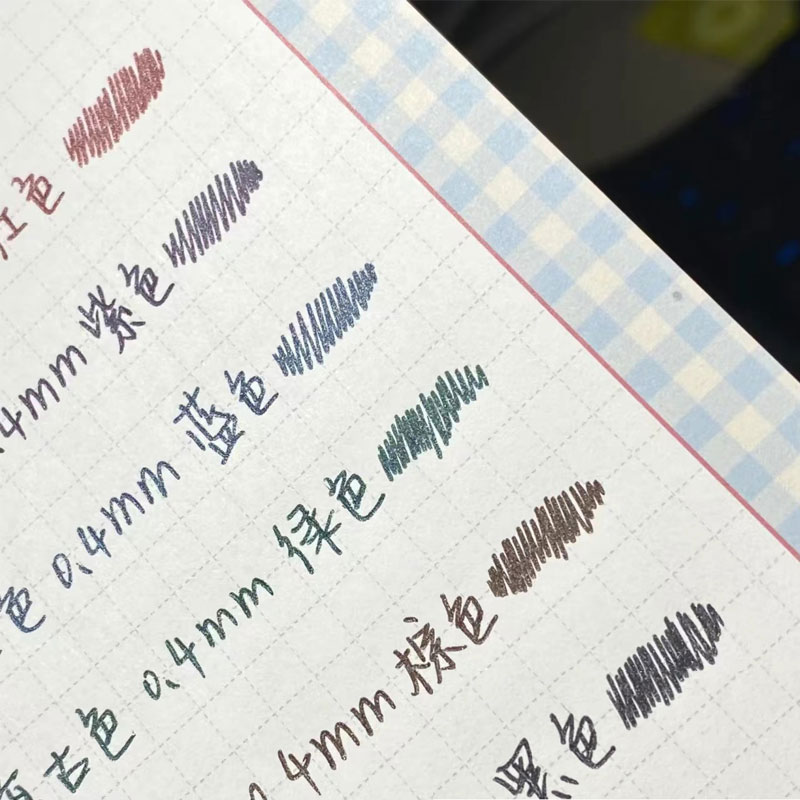 红色
.4mm 紫色
色 0.4mm 蓝色
古色 0.4mm 绿色
.4mm 棕色
黑色